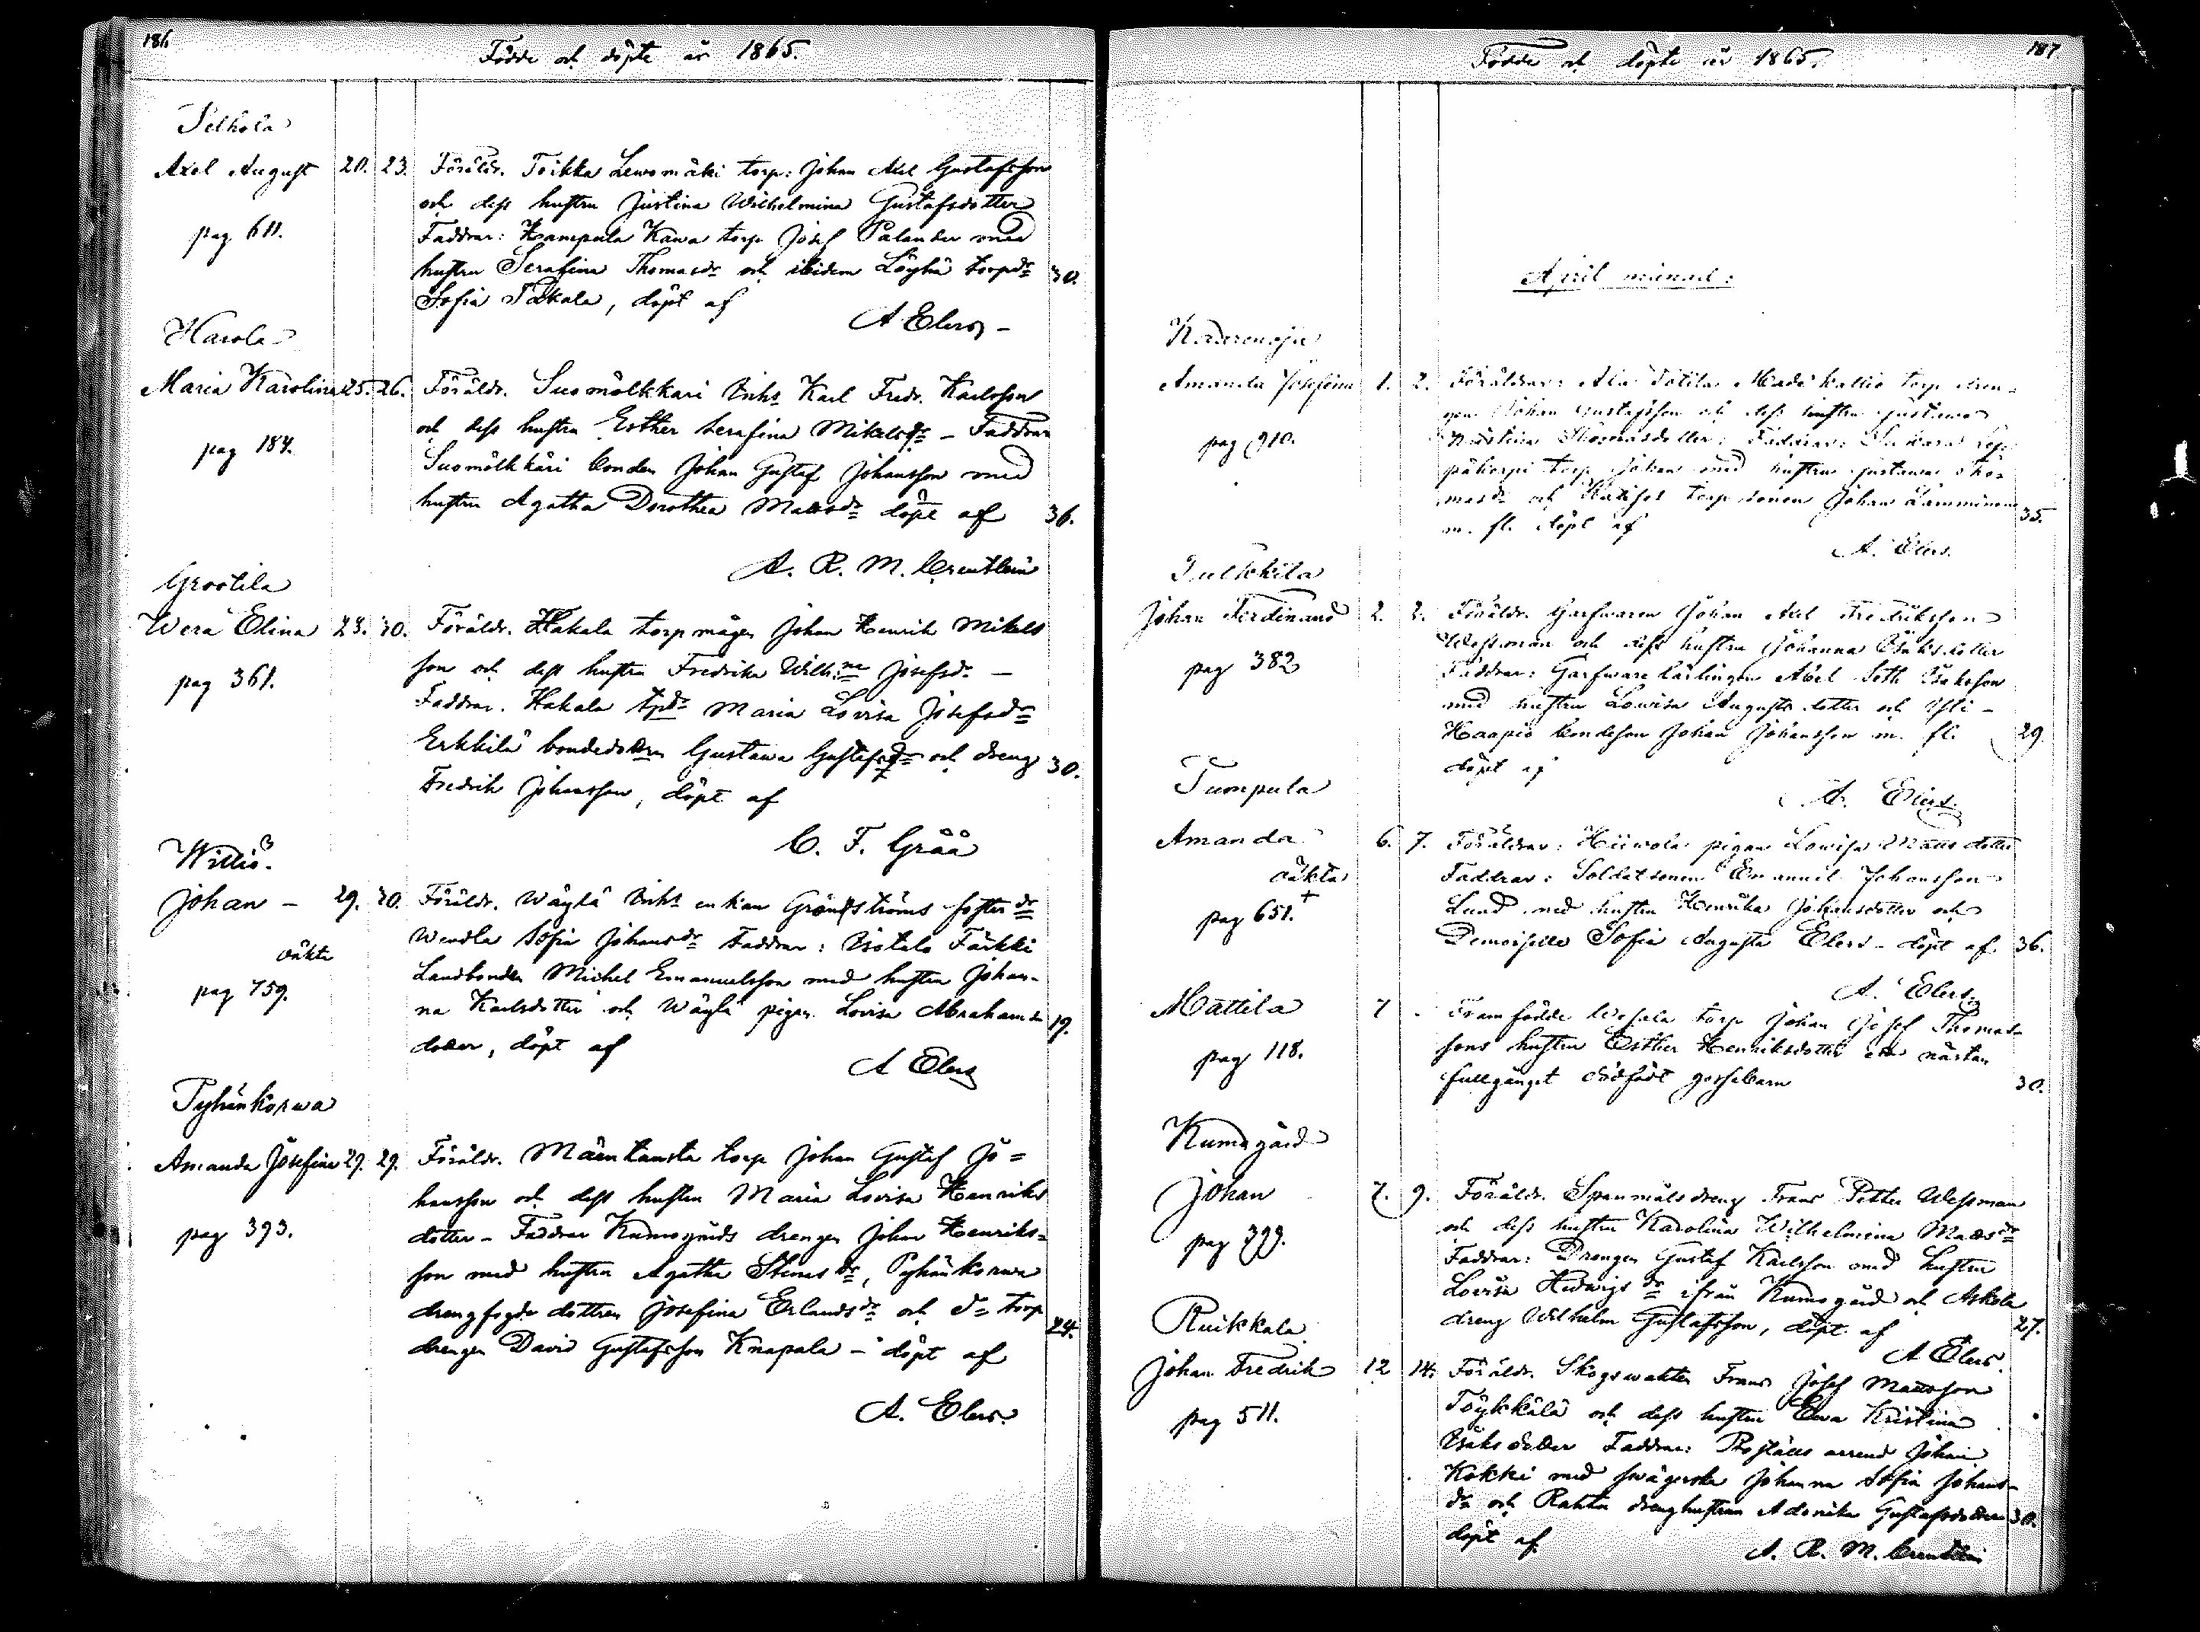 186
Födde och döpte år 1865.
Selkola
Axel August 20. 23. Föräldr. Toikka torp: Johan Axel Gustafsson
och dess hustru Justina Wilhelmina Gustafsdotter
pag 611. Faddrar: Kawa torp Josef Palander med
hustru Serafina Thomasdr och ibidem Löyhä torpdr 30.
Sofia, döpt af
A Elers
Harola
Maria Karolina 25. 26. Föräldr. Suomölkkari Inhs Karl Fredr. Karlsson
och dess hustru Esther Serafina Mikelsdr – Faddrar
pag 184. Suomölkkäri bonden Johan Gustaf Johansson med
hustru Agatha Dorothea Matsdr döpt af 36.
A. R. M.
Grootila
Wera Elina 30. Föräldr. Hakala torpmågen Johan Henrik Mikels
son och dess hustru Fredrika Wilh:na Josefsdr –
pag 361. Faddrar. Hakala tpdr Maria Lovisa Josefsdr
Erkkilä Gustawa Gustafsdr och dreng 30.
Fredrik Johansson, döpt af
C. F. Gråå
Johan – 29. 30. Föräldr. Wäylä Inhs enkan fosterdr
oäkta Wendla Sofia Johansdr Faddrar: Isotalo Färkki
Landbonden Michel Emanuelsson med hustru Johan-
pag 759. na Karlsdotter och Wäylä pigan Lovisa Abrahams 19.
dotter, döpt af
A Elers
Pyhänkorwa
Amanda Josefina 29. 29. Föräldr. torp Johan Gustaf Jo=
hansson och dess hustru Maria Lovisa Henriks
pag 393. dotter – Faddrar Kumogårds drengen Johan Henriks=
son med hustru Agatha dr, Pyhänkorwa
drengfogde dottren Josefina Erlandsdr och torp 24.
drengen David Gustafsson Knapala – döpt af
A. Elers.
187
Födde och döpte år 1865.
April månad:
Amanda Josefina 1. 2. Föräldrar: torp dren=
gen Johan Gustafsson och dess hustru Gustawa
pag 910. Kristina Thomasdotter: Faddrar:
torp Johan med hustru Gustawa Tho=
masdr och torp sonen Johan 35.
m. fl. döpt af
A. Elers.
Johan Ferdinand 2. 2. Föräldr. Garfwaren Johan Axel Fredriksson
Wessman och dess hustru Johanna Isaksdotter
pag 382 Faddrar: Garfware lärlingen Axel Seth Isaksson
med hustru Lowisa Augusta dotter och Yli-
Haapio bondeson Johan Johansson m. fl. 29.
döpt af
A. Elers.
Tumpula
Amanda 6. 7. Föräldrar: Hiiwola pigan Lowisa Mats dotter
oäkta Faddrar: Soldat sonen Emanuel Johansson
pag 651. + Lund med hustru Henrika Johansdotter och
Demoiselle Sofia Augusta Elers – döpt af 36.
A. Elers.
Mattila 7 Framfödde torp Johan Josef Thomas
pag 118. sons hustru Esther Henriksdotter ett nästan
fullgånget dödfödt gossebarn 30.
Kumogård
Johan 7. 9. Föräldr. Spanmåls dreng Frans Petter Wessman
och dess hustru Karolina Wilhelmina Matsdr
pag 399. Faddrar: Drengen Gustaf Karlsson med hustru
Lovisa Hedwigsdr ifrån Kumogård och Askola
dreng Wilhelm Gustafsson, döpt af 27.
A Elers.
Ruikkala
Johan Fredrik 12 14. Föräldr. Skogswakten Frans Josef Matsson
pag 511. Töykkälä och dess hustru Ewa Kristina
Isaks dotter Faddrar: arrend Johan
Kokki med swägerska Johanna Sofia Johans-
dr och drenghustrun Adonika Gustafsdotter 30.
döpt af
A. R. M.